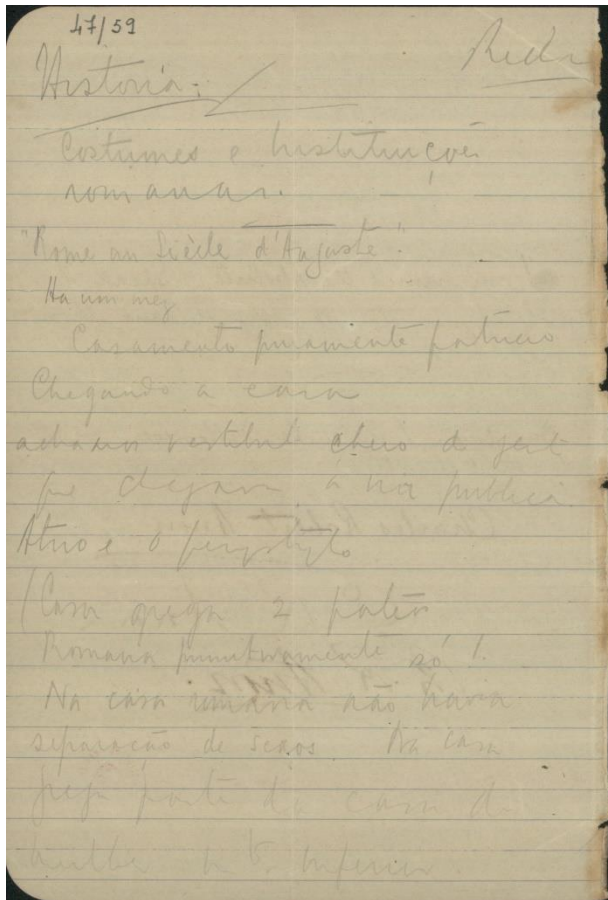 47/59
Historia:
Costumes e Instituições
romanas.
"Rome au Siècle d'Auguste".
Ha um mez
Casamento puramente patricio
Chegando a casa
vestibul cheio de gent
que á via publica
Atrio e o peristylo
(Casa grega 2 pateos
Romana primitivamente só 1.
Na casa romana não havia
separação de sexos Na casa
grega parte da casa da
mulher inferior.